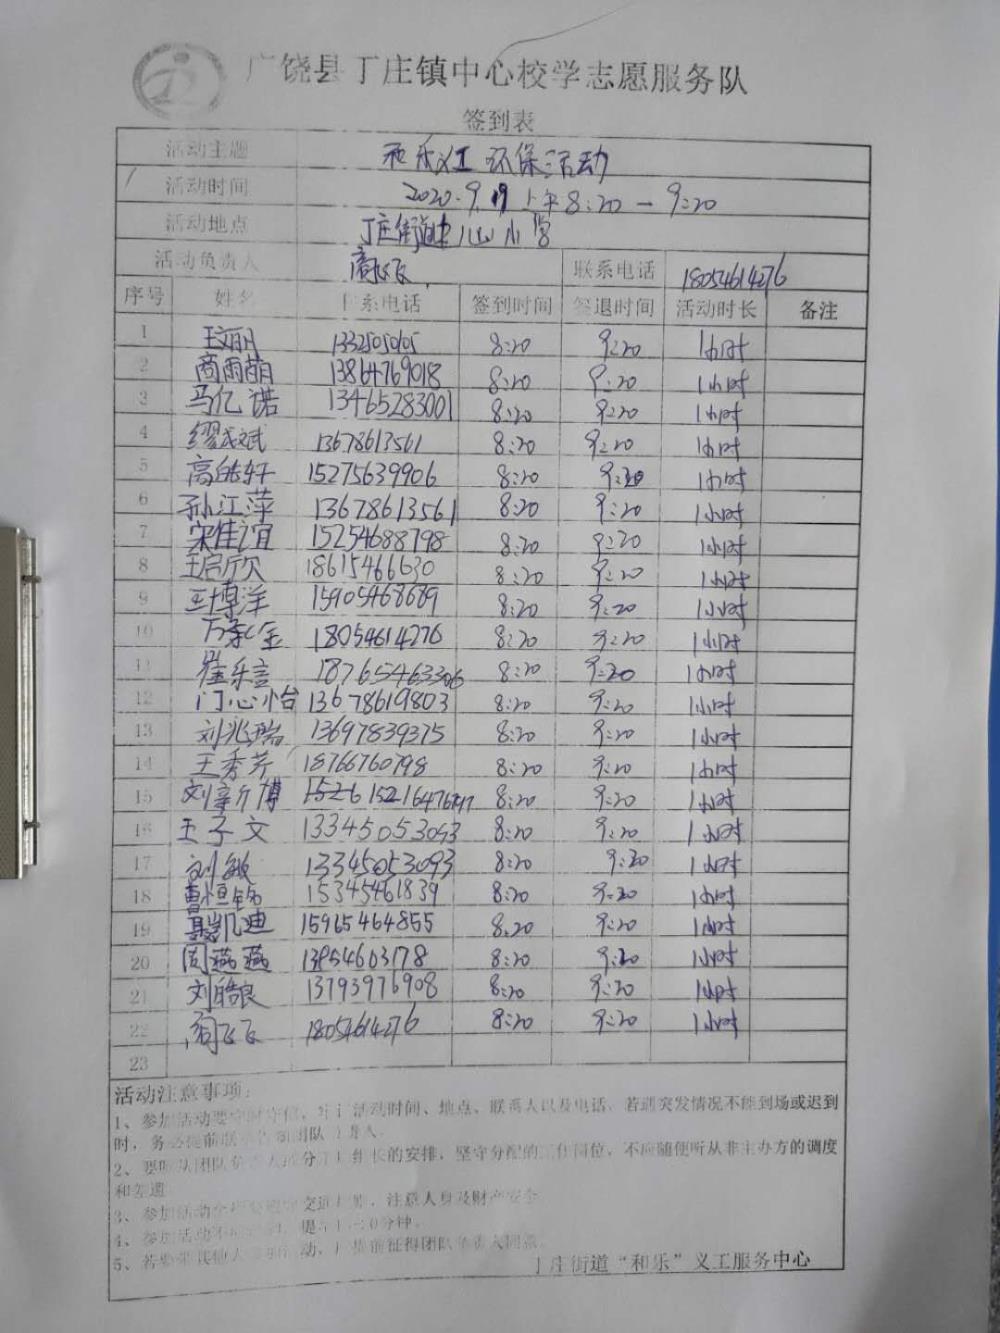 广饶县丁庄镇中心校学志愿服务队
签到表
活动主题 和乐义工环保活动
活动时间 2020.9.19 上午8:20-9:20
活动地点 丁庄街道 小学
活动负责人 联系电话 18054614276
序号 姓名 联系电话 签到时间 签退时间 活动时长 备注
1 王丽丹 1332505105 8:20 9:20 1小时
2 商雨萌 13864769018 8:20 9:20 1小时
3 马亿诺 13465283001 8:20 9:20 1小时
4 缪成斌 13678613561 8:20 9:20 1小时
5 高皓轩 15275639906 8:20 9:20 1小时
6 孙江萍 13678613561 8:20 9:20 1小时
7 宋佳谊 15254688798 8:20 9:20 1小时
8 王启欣 18615466630 8:20 9:20 1小时
9 王博洋 15905468689 8:20 9:20 1小时
10 18054614276 8:20 9:20 1小时
11 崔乐言 18765463306 8:20 9:20 1小时
12 门心怡 13678619803 8:20 9:20 1小时
13 刘兆瑞 13697839375 8:20 9:20 1小时
14 王秀芹 18766760798 8:20 9:20 1小时
15 8:20 9:20 1小时
16 王子文 13345053093 8:20 9:20 1小时
17 刘敏 13345053093 8:20 9:20 1小时
18 曹恒铭 15345461839 8:20 9:20 1小时
19 聂凯迪 15965464855 8:20 9:20 1小时
20 周燕燕 13954603178 8:20 9:20 1小时
21 刘皓良 13793976908 8:20 9:20 1小时
22 18054614276 8:20 9:20 1小时
23
活动注意事项:
1、参加活动要守时守信,牢记活动时间、地点、联系人以及电话,若遇突发情况不能到场或迟到
时,务必提前联系 团队 人。
2、要听从团队负责人或分 组长的安排,坚守分配的工作岗位,不应随便听从非主办方的调度
和差遣
3、参加活动 交通 ,注意人身及财产安全
4、参加活动不 ,提 10分钟。
5、若要带其他人 活动,应提前征得团队负责人同意。
丁庄街道“和乐”义工服务中心